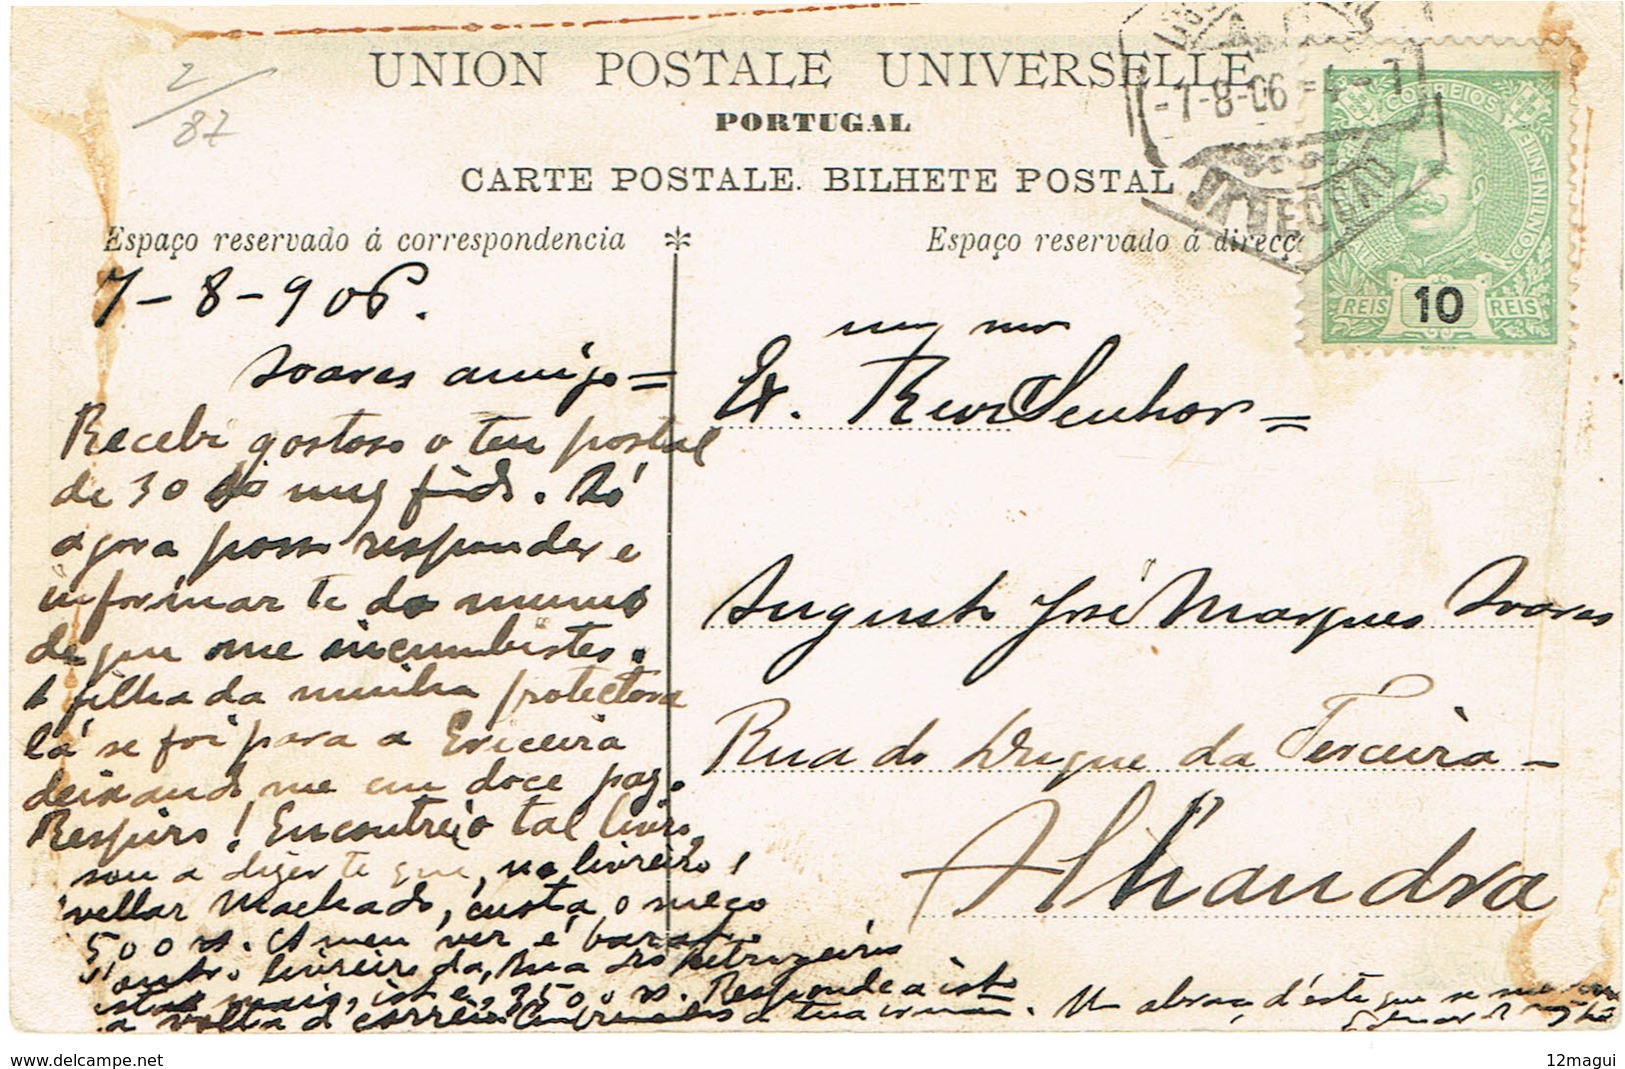 2/87
UNION POSTALE UNIVERSELLE
PORTUGAL
CARTE POSTALE. BILHETE POSTAL
-7-8-06
CORREIOS
REIS 10 REIS
Espaço reservado á correspondencia
Espaço reservado á direcç
7-8-906.
Soares amigo=
Recebi gostoso o teu postal
de 30 do mez findo. Só
agora posso responder e
informar te do
de que me incumbistes.
A filha da minha protectora
lá se foi para a Ericeira
deixando me em doce paz.
Respiro! Encontrei o tal livro,
sou a dizer te que, no livreiro,
Machado, custa, o meço
500 rs. A meu ver é barato.
N'outro livreiro da, Rua do
mais, isto é, 3500 rs. Responde a isto
a volta d correio. a tua irmã. Um abraço, d'este que se
Ex. Rev Senhor=
Augusto José Marques Soares
Rua do Duque da Terceira-
Alhandra
www.delcampe.net
12magui